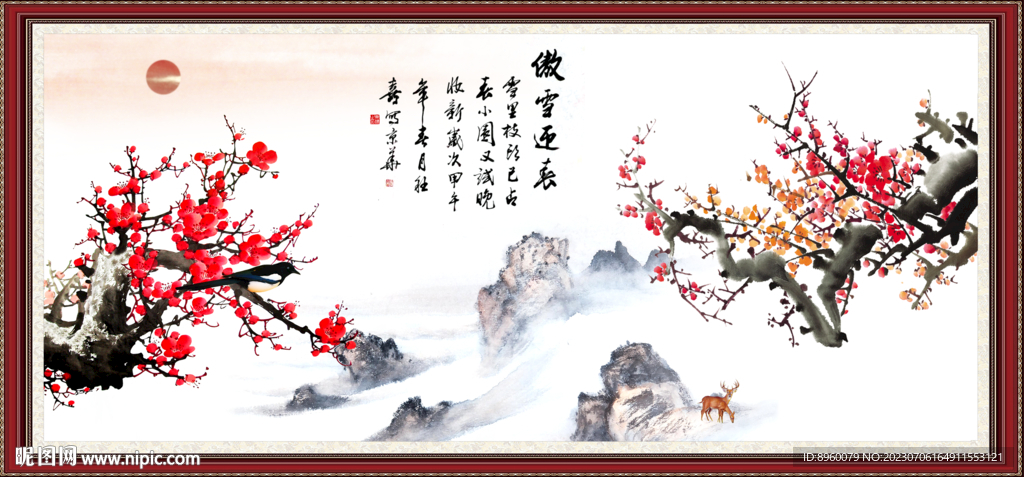 傲雪迎春
雪里枝头已占
春小园又试晚
妆新岁次甲午
年春月狂
喜写京华
昵图网 www.nipic.com
ID:8960079 NO:20230706164911553121